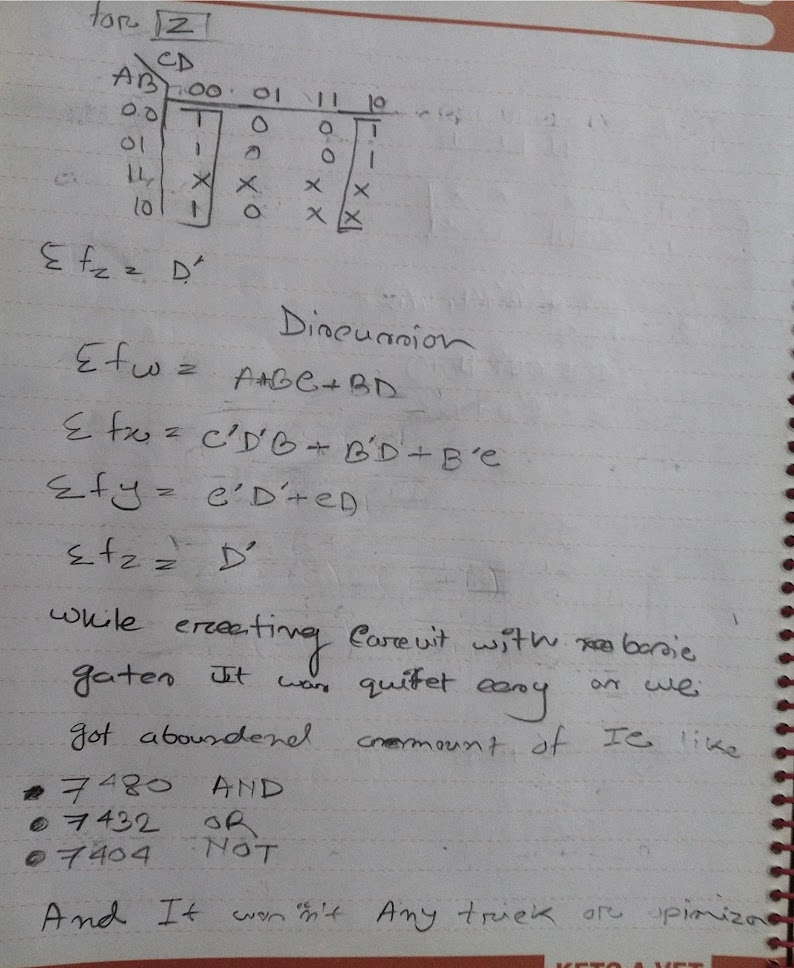 for Z
CD
AB 00 01 11 10
00 1 0 0 1
01 1 0 0 1
11 X X X X
10 1 0 X X
Σ fz = D'
Discussion
Σ fw = A+BC+BD
Σ fx = C'D'B + B'D + B'C
Σ fy = C'D'+CD
Σ fz = D'
while creating Carcuit with basic
gates It was quitet easy as we
got aboundend ammount of IC like
• 7480 AND
• 7432 OR
• 7404 NOT
And It wasn't Any trick or